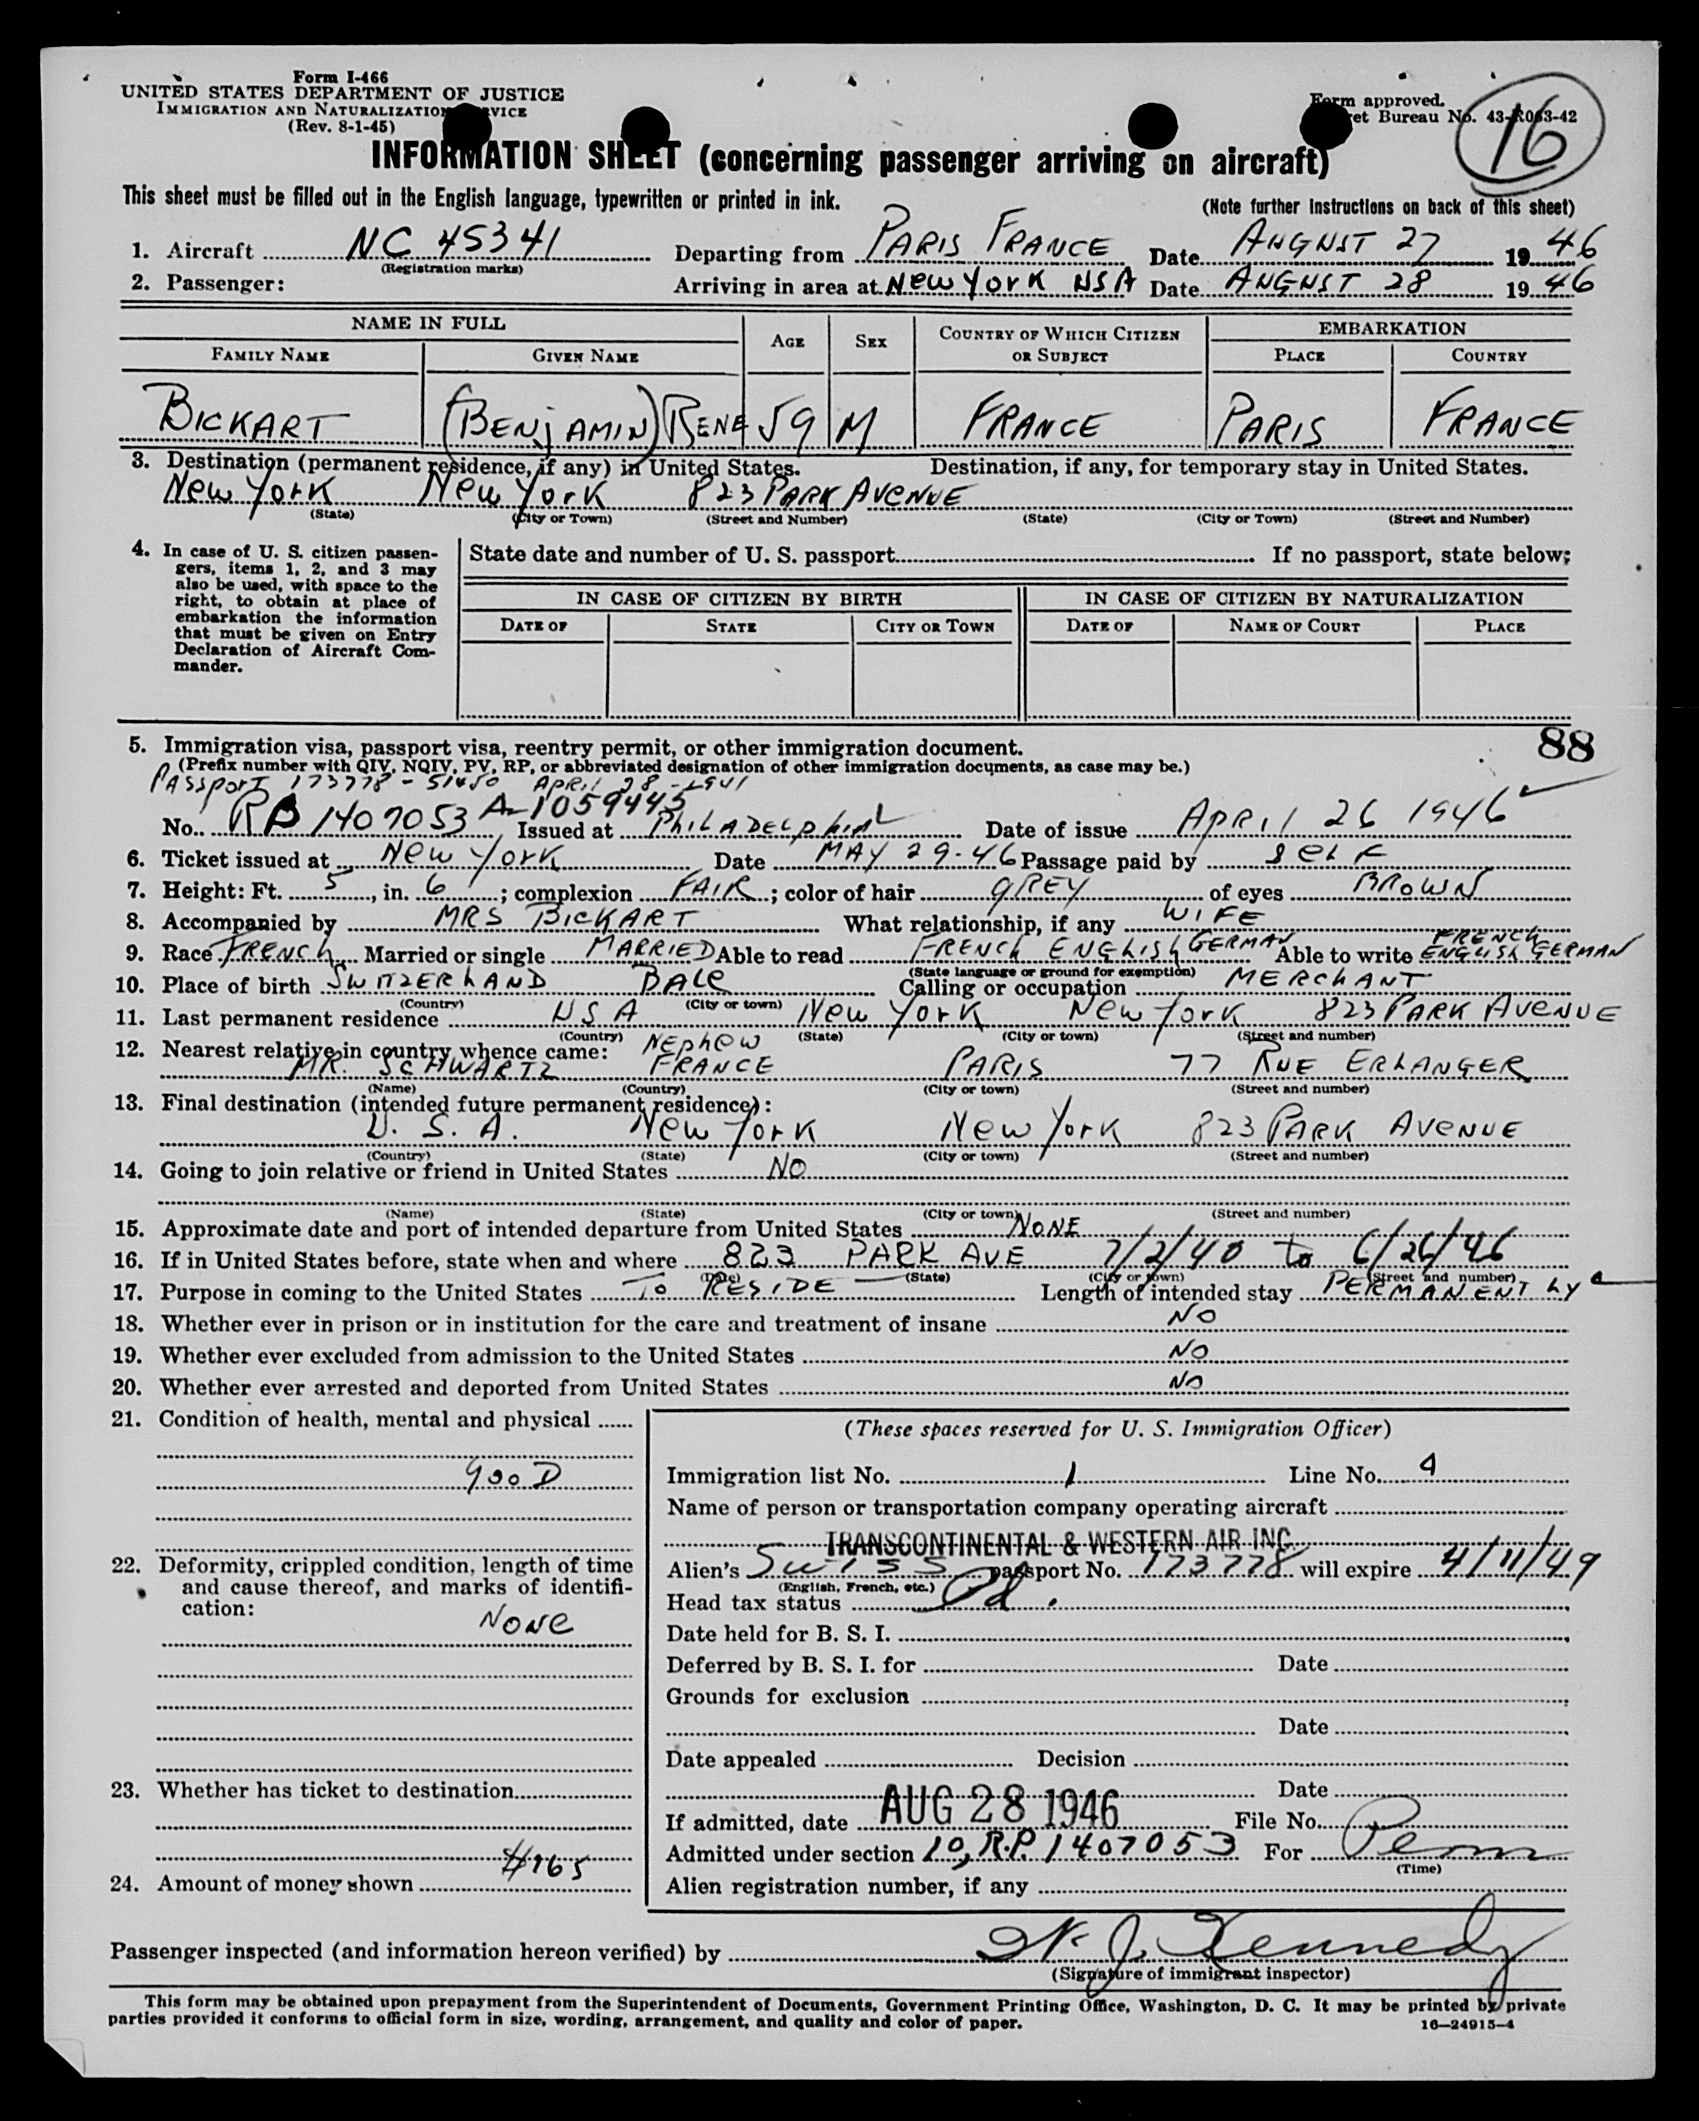 Form I-466
UNITED STATES DEPARTMENT OF JUSTICE
IMMIGRATION AND NATURALIZATION SERVICE
(Rev. 8-1-45)
Form approved.
Budget Bureau No. 43-R063-42
16
INFORMATION SHEET (concerning passenger arriving on aircraft)
This sheet must be filled out in the English language, typewritten or printed in ink.
(Note further instructions on back of this sheet)
1. Aircraft NC 45341 Departing from PARIS FRANCE Date AUGUST 27 1946
(Registration marks)
2. Passenger: Arriving in area at New York USA Date AUGUST 28 1946
NAME IN FULL AGE SEX COUNTRY OF WHICH CITIZEN OR SUBJECT EMBARKATION
FAMILY NAME GIVEN NAME PLACE COUNTRY
BICKART (BENJAMIN) RENE 59 M FRANCE PARIS FRANCE
3. Destination (permanent residence, if any) in United States. Destination, if any, for temporary stay in United States.
New York New York 823 PARK AVENUE
(State) (City or Town) (Street and Number) (State) (City or Town) (Street and Number)
4. In case of U. S. citizen passen-
gers, items 1, 2, and 3 may
also be used, with space to the
right, to obtain at place of
embarkation the information
that must be given on Entry
Declaration of Aircraft Com-
mander.
State date and number of U. S. passport If no passport, state below:
IN CASE OF CITIZEN BY BIRTH IN CASE OF CITIZEN BY NATURALIZATION
DATE OF STATE CITY OR TOWN DATE OF NAME OF COURT PLACE
88
5. Immigration visa, passport visa, reentry permit, or other immigration document.
(Prefix number with QIV, NQIV, PV, RP, or abbreviated designation of other immigration documents, as case may be.)
PASSPORT 173778 - 51450 APRIL 28 - 1941
A-1059445
No. RP 1407053 Issued at PHILADELPHIA Date of issue APRIL 26 1946
6. Ticket issued at New York Date MAY 29-46 Passage paid by SELF
7. Height: Ft. 5, in. 6; complexion FAIR; color of hair GREY of eyes BROWN
8. Accompanied by MRS BICKART What relationship, if any WIFE
9. Race FRENCH Married or single MARRIED Able to read FRENCH ENGLISH GERMAN Able to write FRENCH ENGLISH GERMAN
(State language or ground for exemption)
10. Place of birth SWITZERLAND BALE Calling or occupation MERCHANT
(Country) (City or town)
11. Last permanent residence USA New York New York 823 PARK AVENUE
(Country) (State) (City or town) (Street and number)
12. Nearest relative in country whence came: NEPHEW
MR. SCHWARTZ FRANCE PARIS 77 RUE ERLANGER
(Name) (Country) (City or town) (Street and number)
13. Final destination (intended future permanent residence):
U. S. A. New York New York 823 PARK AVENUE
(Country) (State) (City or town) (Street and number)
14. Going to join relative or friend in United States NO
(Name) (State) (City or town) (Street and number)
15. Approximate date and port of intended departure from United States NONE
16. If in United States before, state when and where 823 PARK AVE 7/2/40 to 6/26/46
(Date) (State) (City or town) (Street and number)
17. Purpose in coming to the United States TO RESIDE Length of intended stay PERMANENTLY
18. Whether ever in prison or in institution for the care and treatment of insane NO
19. Whether ever excluded from admission to the United States NO
20. Whether ever arrested and deported from United States NO
21. Condition of health, mental and physical
GOOD
22. Deformity, crippled condition, length of time
and cause thereof, and marks of identifi-
cation:
NONE
23. Whether has ticket to destination
24. Amount of money shown $165
(These spaces reserved for U. S. Immigration Officer)
Immigration list No. 1 Line No. 9
Name of person or transportation company operating aircraft
TRANSCONTINENTAL & WESTERN AIR INC.
Alien's Swiss passport No. 173778 will expire 4/11/49
(English, French, etc.)
Head tax status Pd.
Date held for B. S. I.
Deferred by B. S. I. for Date
Grounds for exclusion
Date
Date appealed Decision
Date
If admitted, date AUG 28 1946 File No.
Admitted under section 10, R.P. 1407053 For Perm
(Time)
Alien registration number, if any
Passenger inspected (and information hereon verified) by W. J. Kennedy
(Signature of immigrant inspector)
This form may be obtained upon prepayment from the Superintendent of Documents, Government Printing Office, Washington, D. C. It may be printed by private
parties provided it conforms to official form in size, wording, arrangement, and quality and color of paper.
16—24915-4